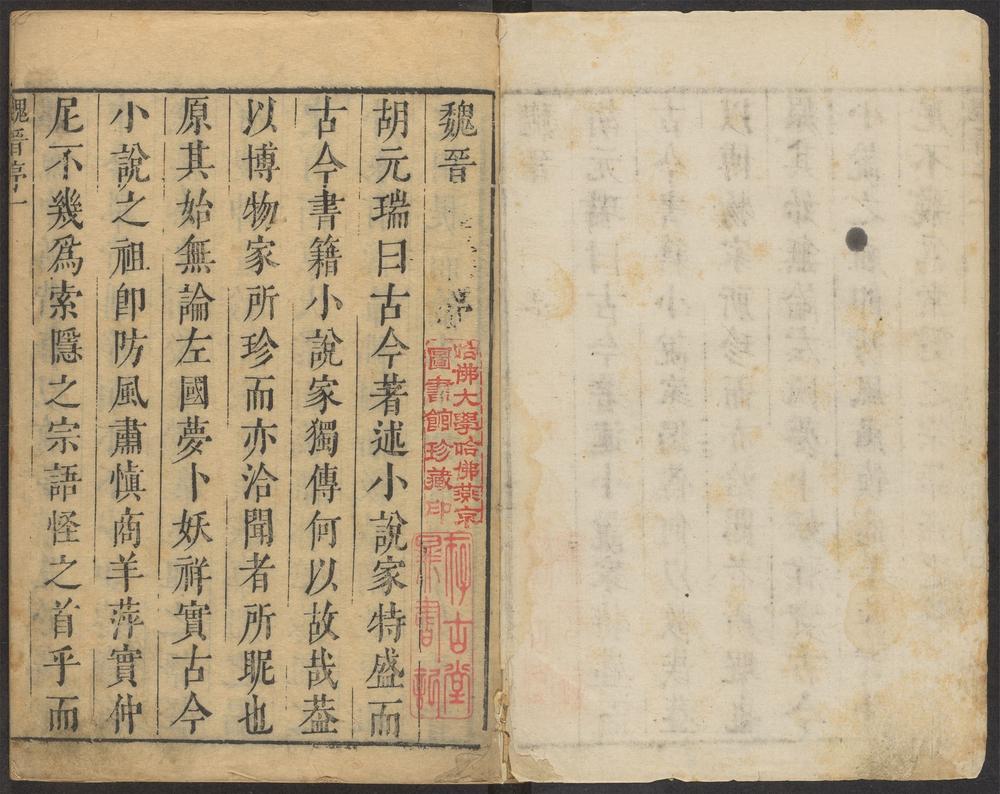 魏晉
胡元瑞曰古今著述小說家特盛而
古今書籍小說家獨傳何以故哉葢
以博物家所珍而亦洽聞者所昵也
原其始無論左國夢卜妖祥實古今
小說之祖卽防風肅慎商羊萍實仲
尼不幾爲索隱之宗語怪之首乎而
魏晉序一
哈佛大學哈佛燕京
圖書館珍藏印